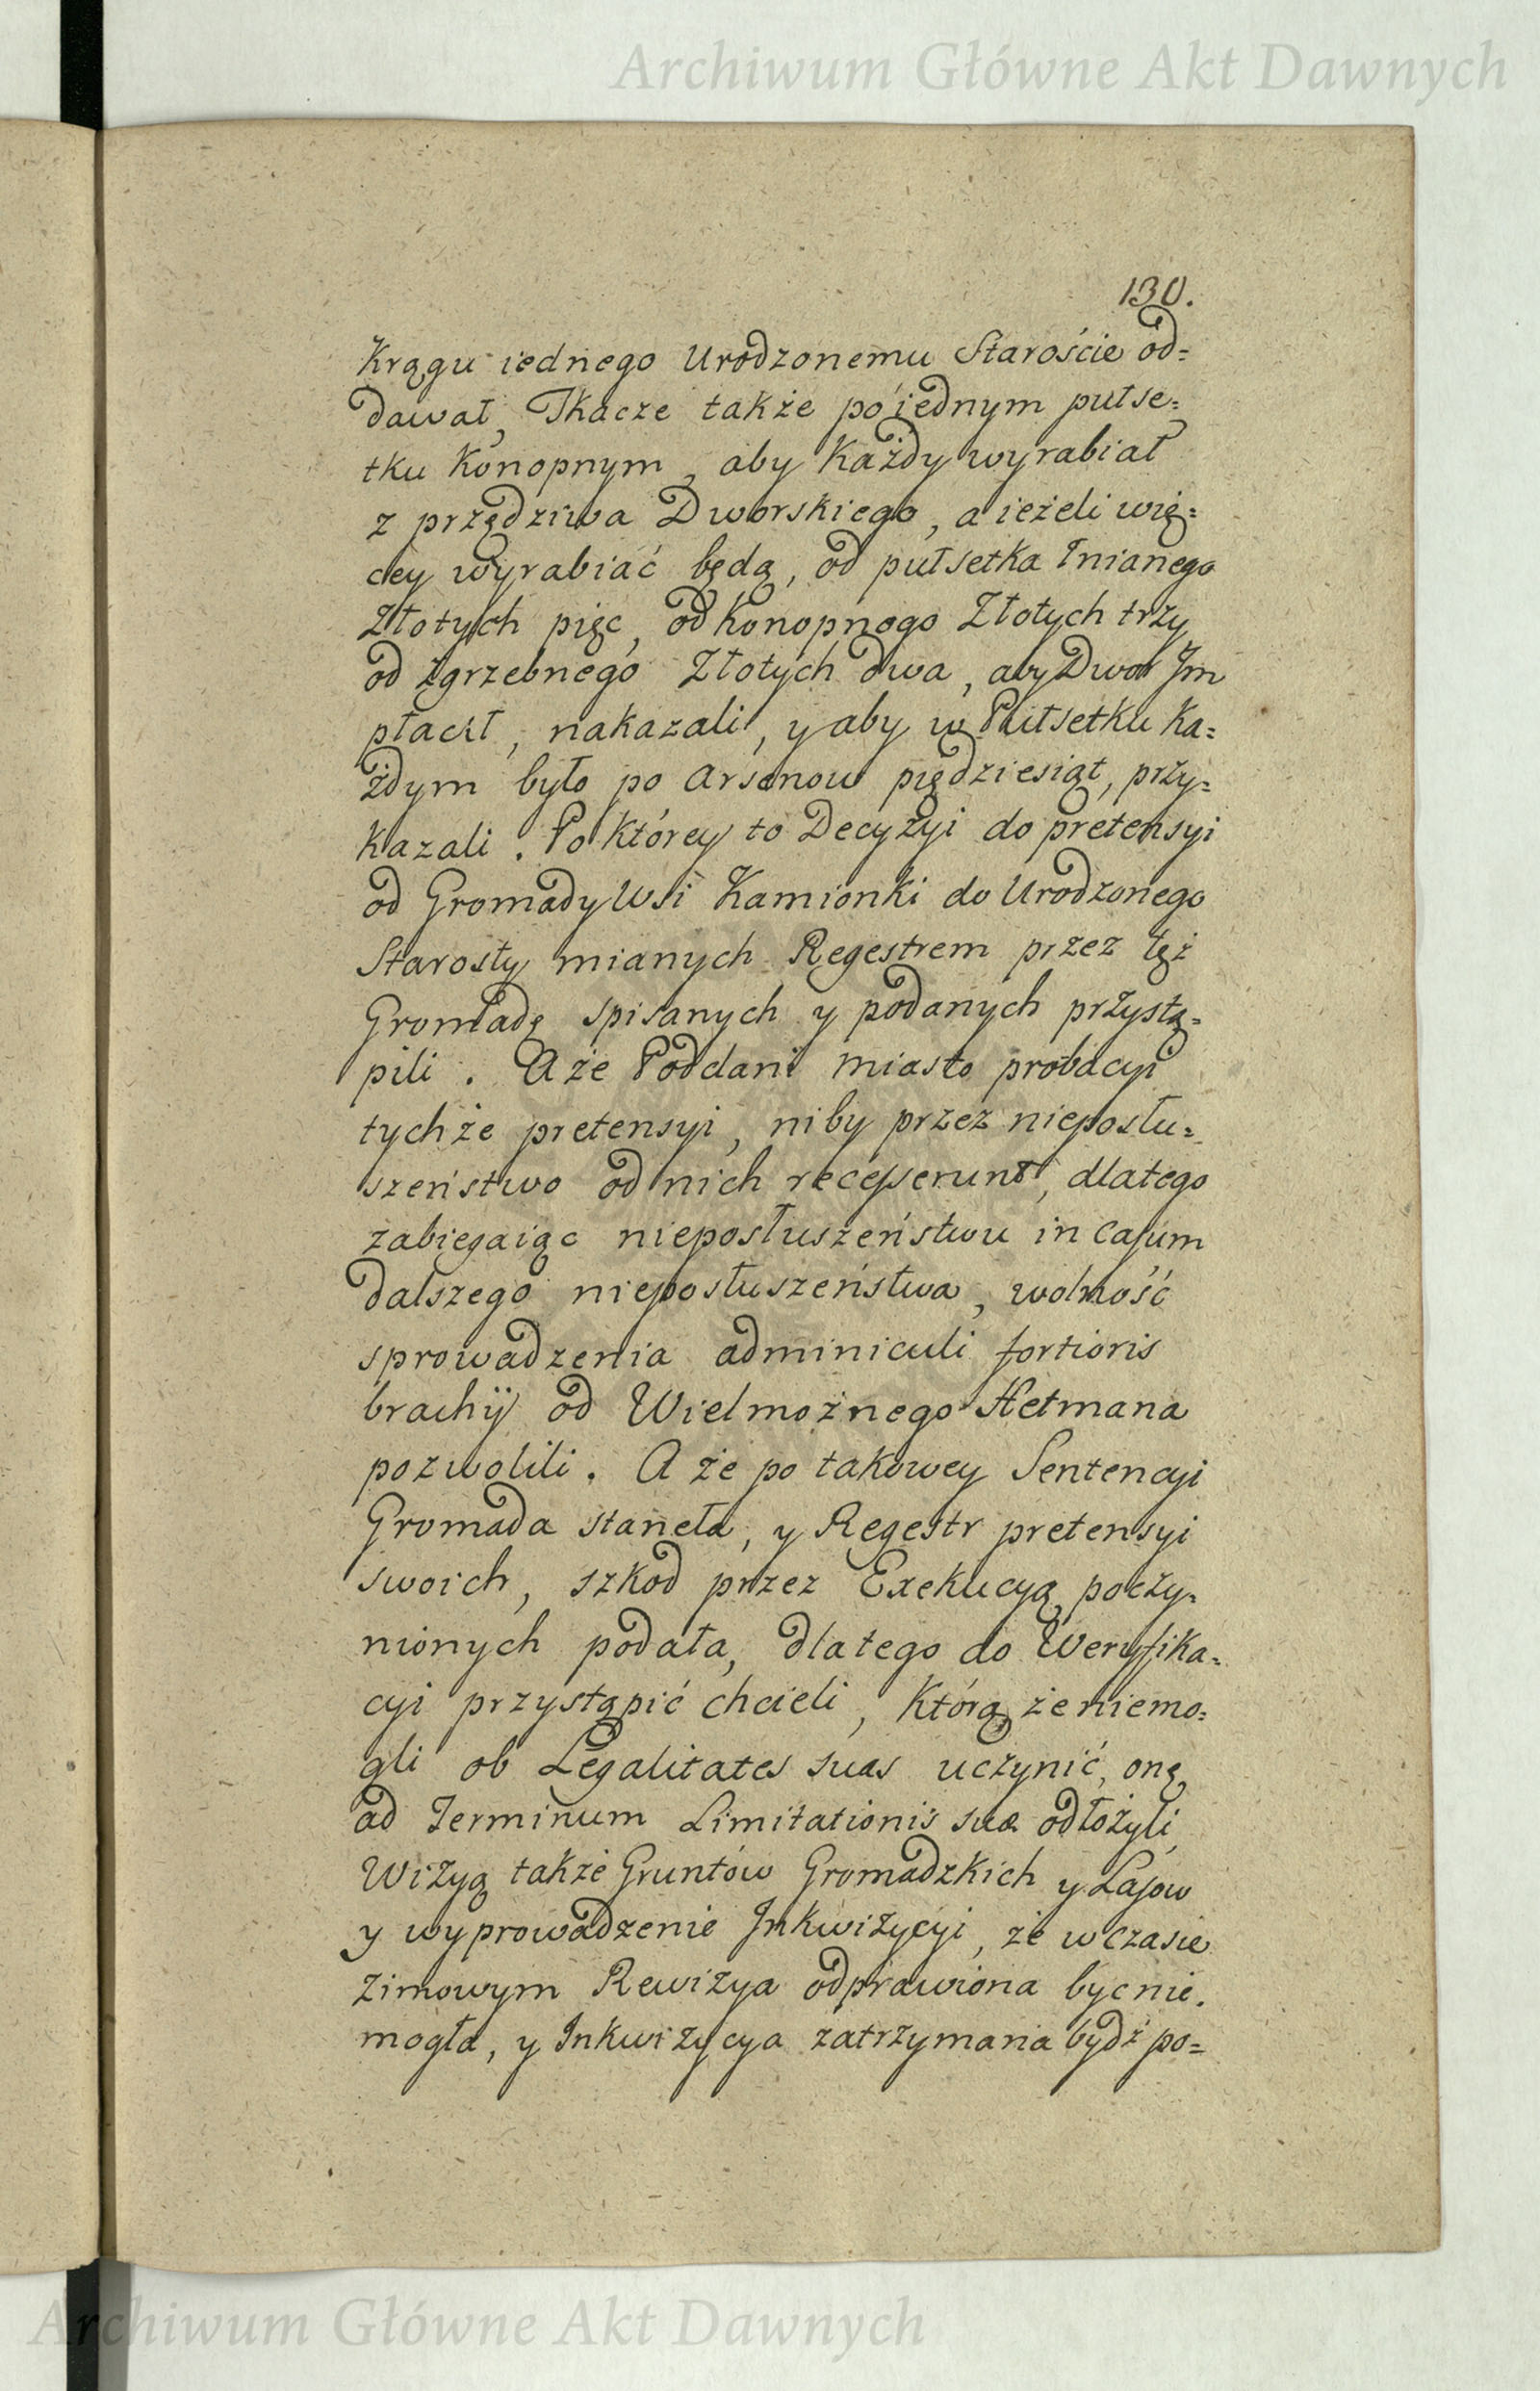 Archiwum Główne Akt Dawnych
130.
Krągu iednego Urodzonemu Staroście od=
dawał, Tkacze także po iednym pułse=
tku Konopnym, aby Każdy wyrabiał
z przędziwa Dworskiego, a ieżeli wię=
cey wyrabiać będą, od pułsetka lnianego
Złotych pięc, od Konopnego Złotych trzy
od Zgrzebnego Złotych dwa, aby Dwor Jm
płacił, nakazali, y aby w Pułsetku Ka=
żdym było po Arsenow piędziesiąt, przy=
kazali. Po Którey to Decyzyi do pretensyi
od Gromady Wsi Kamionki do Urodzonego
Starosty mianych Regestrem przez tęż
Gromadę spisanych y podanych przystą=
pili. A że Poddani miasto probacyi
tychże pretensyi, niby przez nieposłu=
szeństwo od nich recesserunt, dlatego
zabiegaiąc nieposłuszeństwu in Casum
dalszego nieposłuszeństwa, wolność
sprowadzenia adminiculi fortioris
brachÿ od Wielmożnego Hetmana
pozwolili. A że po takowey Sentencyi
Gromada staneła, y Regestr pretensyi
swoich, szkod przez Exekucyą poczy=
nionych podała, dlatego do Weryfika=
cyi przystąpić chcieli, Którą, że niemo=
gli ob Legalitates suas uczynić, onę
ad Terminum Limitationis suæ odłożyli,
Wizyą także Gruntów Gromadzkich y Lasow
y wyprowadzenie Inkwizycyi, że w czasie
zimowym Rewizya odprawiona byc nie.
mogła, y Inkwizycya zatrzymana bydź po=
Archiwum Główne Akt Dawnych